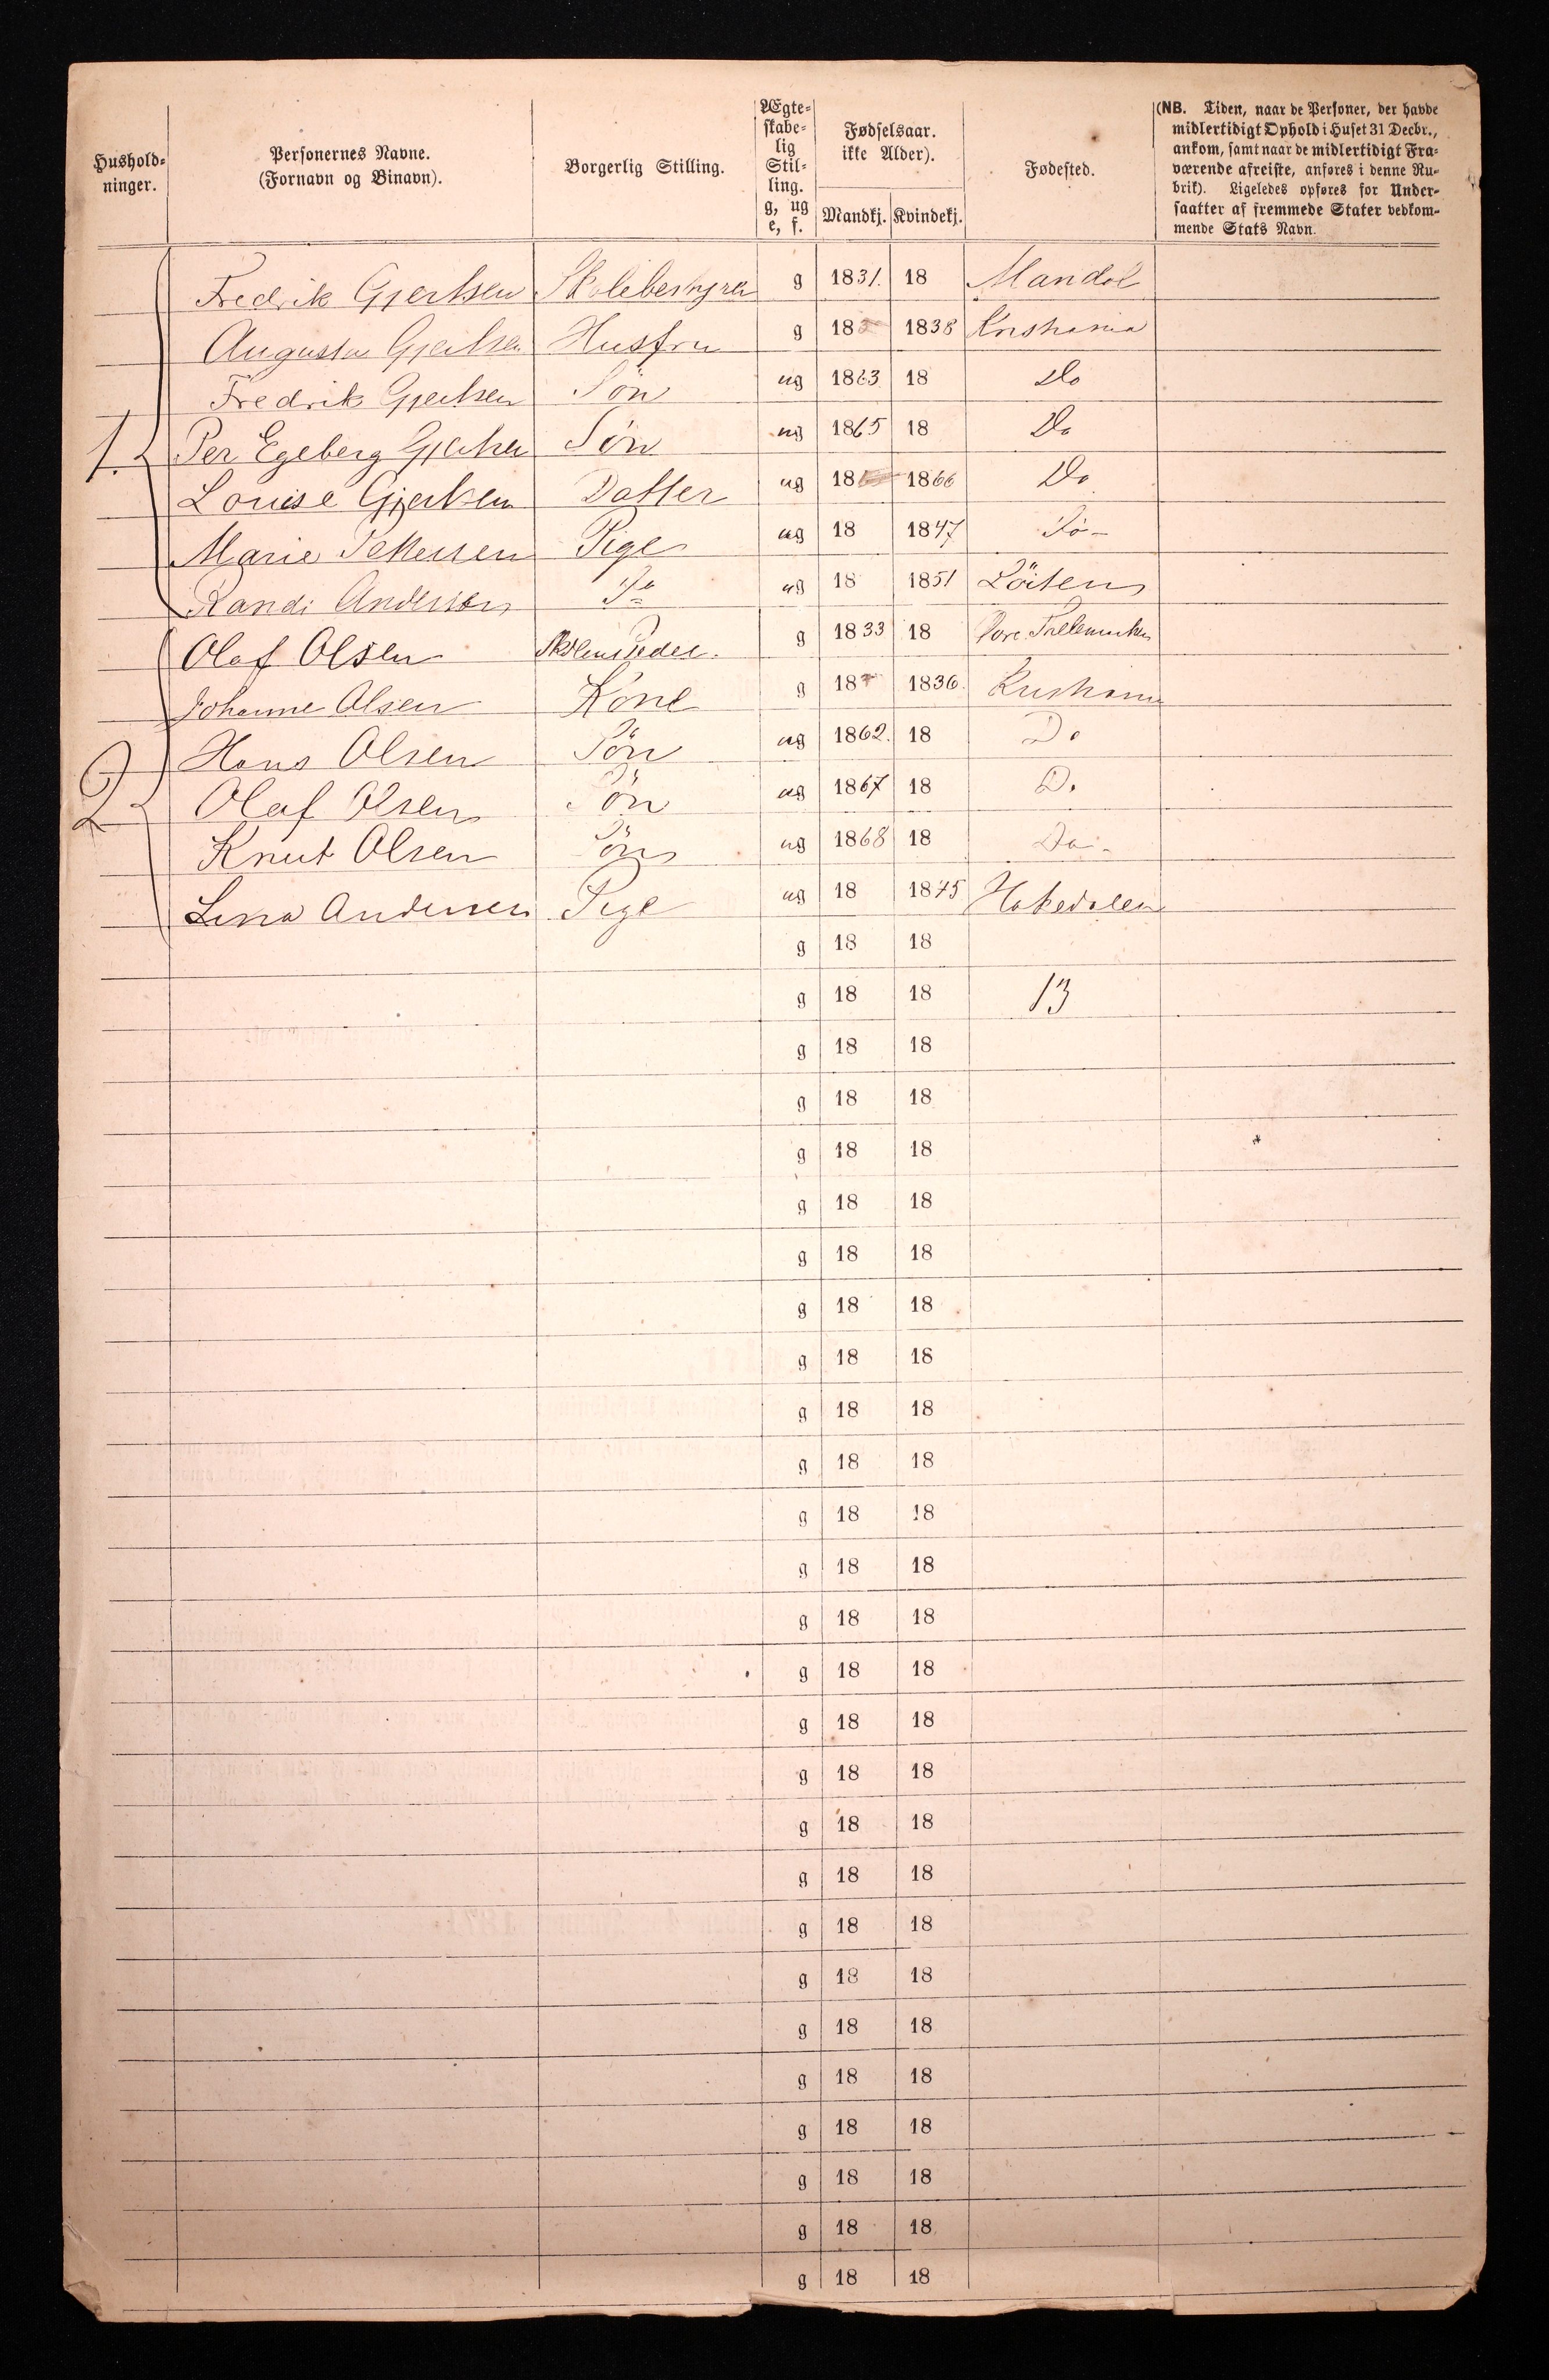 Hushold-
ninger.
Personernes Navne.
(Fornavn og Binavn).
Borgerlig Stilling.
Ægte-
skabe-
lig
Stil-
ling.
g, ug
e, f.
Fødselsaar.
ikke Alder).
Mandkj. Kvindekj.
Fødested.
(NB. Tiden, naar de Personer, der havde
midlertidigt Ophold i Huset 31 Decbr.,
ankom, samt naar de midlertidigt Fra-
værende afreiste, anføres i denne Ru-
brik). Ligeledes opføres for Under-
saatter af fremmede Stater vedkom-
mende Stats Navn.
Fredrik Gjertsen Skolebestyrer g 1831. 18 Mandal
Augusta Gjertsen Hustru g 18 1838 Kristiania
Fredrik Gjertsen Sön ug 1863 18 Do
1. Per Egeberg Gjertsen Sön ug 1865 18 Do
Louise Gjertsen Datter ug 18 1866 Do
Marie Pettersen Pige ug 18 1847 Do
Randi Anderssen Do ug 18 1851 Löiten
Olaf Olsen g 1833 18
Johanne Olsen Kone g 18 1836. Kristiania
Hans Olsen Sön ug 1862. 18 Do
2 Olaf Olsen Sön ug 1867 18 Do
Knut Olsen Sön ug 1868 18 Do
Lina Andersen Pige ug 18 1845 Hakedalen
g 18 18
g 18 18 13
g 18 18
g 18 18
g 18 18
g 18 18
g 18 18
g 18 18
g 18 18
g 18 18
g 18 18
g 18 18
g 18 18
g 18 18
g 18 18
g 18 18
g 18 18
g 18 18
g 18 18
g 18 18
g 18 18
g 18 18
g 18 18
g 18 18
g 18 18
g 18 18
g 18 18